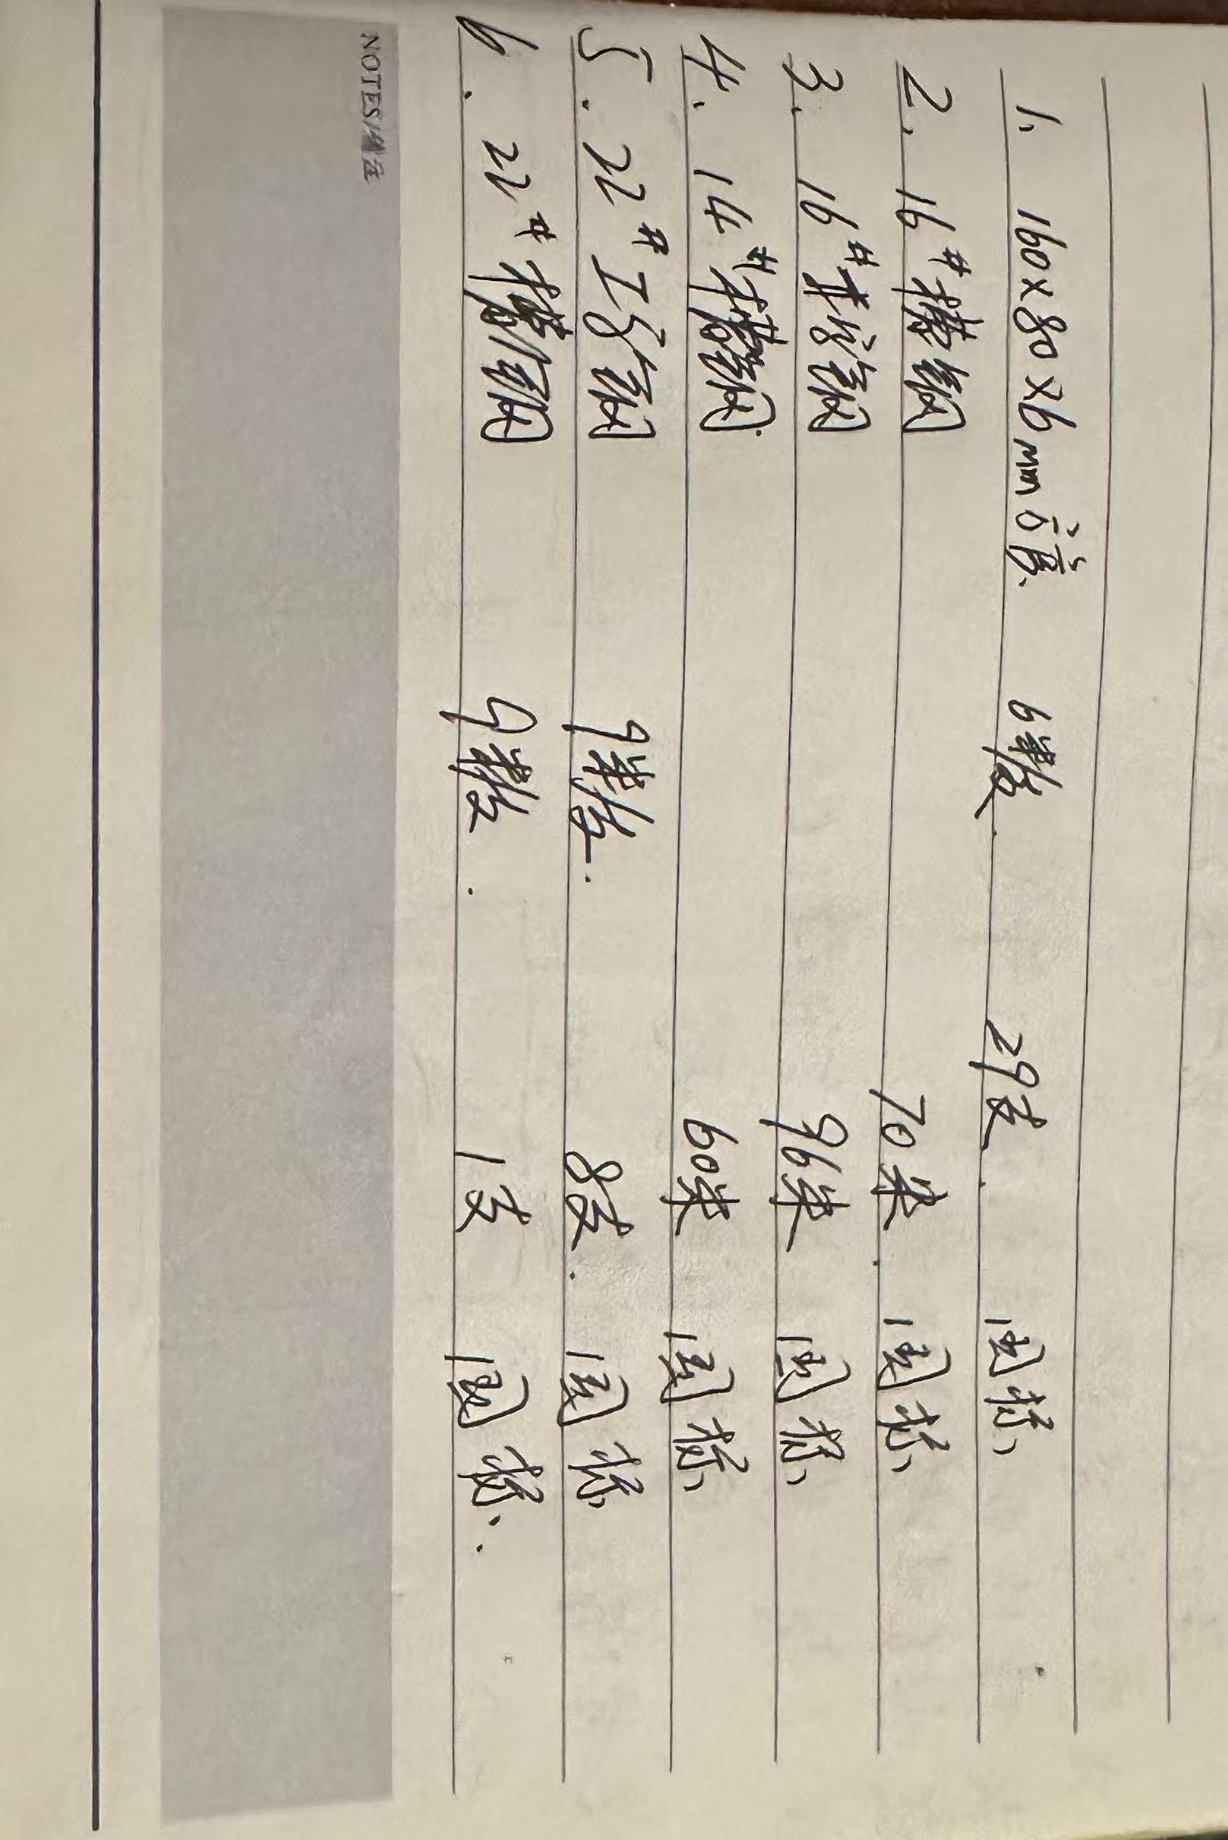 1、160×80×6mm方管 6米/支 29支. 国标
2、16#槽钢 70米. 国标
3、16#槽钢 96米 国标
4、14#槽钢 60米 国标
5.22#工字钢 9米/支. 8支. 国标
6.22#槽钢 9米/支. 1支 国标.
NOTES/备注